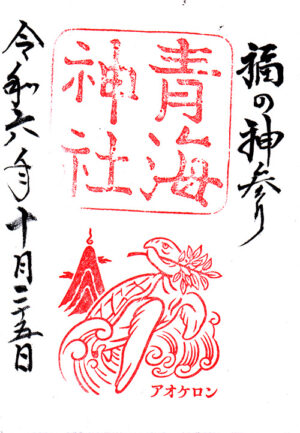 福の神参り
青海
神社
令和六年十月二十五日
アオケロン